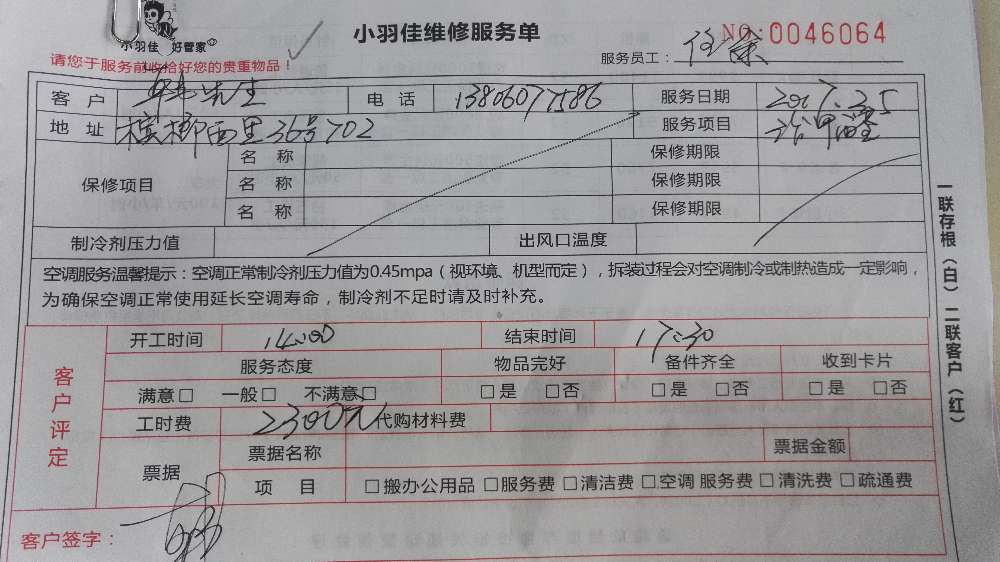 小羽佳 好管家
小羽佳维修服务单
NO:0046064
请您于服务前收拾好您的贵重物品！
服务员工：
客户 先生 电话 13806077586 服务日期 2017.3.5
地址 槟榔西里36号702 服务项目 治甲醛
保修项目 名称 保修期限
名称 保修期限
名称 保修期限
制冷剂压力值 出风口温度
空调服务温馨提示：空调正常制冷剂压力值为0.45mpa（视环境、机型而定），拆装过程会对空调制冷或制热造成一定影响，
为确保空调正常使用延长空调寿命，制冷剂不足时请及时补充。
客户评定
开工时间 14:00 结束时间 17:30
服务态度 物品完好 备件齐全 收到卡片
满意□ 一般□ 不满意□ □是 □否 □是 □否 □是 □否
工时费 2300元 代购材料费
票据 票据名称 票据金额
项目 □搬办公用品 □服务费 □清洁费 □空调 服务费 □清洗费 □疏通费
客户签字：
一联存根（白） 二联客户（红）